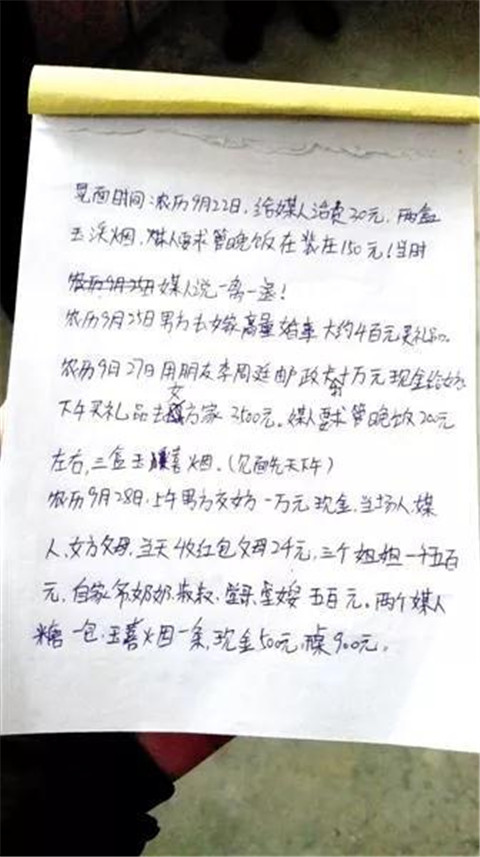 见面时间：农历9月22日，给媒人治费30元，两盒
玉溪烟，媒人要求管晚饭在装庄150元！当时
农历9月25日媒人说一离一退！
农历9月25日男方去女家商量婚事大约4百元买礼品。
农历9月27日用朋友李同延邮政卡十万元现金给女
下午买礼品去女方家2500元。媒人要求管晚饭200元
左右，三盒玉喜烟。(见面先天下午)
农历9月28日，上午男方交女方一万元现金，当场人，媒
人，女方父母，当天收红包父母2千元，三个姐姐一千五百
元，自家爷奶奶，叔叔，堂哥，堂嫂五百元。两个媒人
糖一包，玉喜烟一条，现金500元，桌900元。